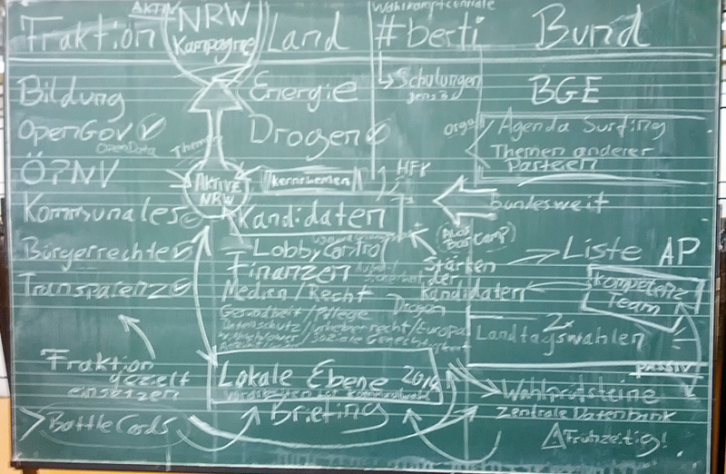 Wahlkampfcentrale
Fraktion
AKTIV
NRW
Kampagne
Land
#berti
Bund
Schulungen
Bildung
OpenGov
OpenData
ÖPNV
Kommunales
Bürgerrechte
Transparenz
Energie
Drogen
Themen
AKTIVE
NRW
Kernthemen
Kandidaten
Lobbycontrol
Finanzen
Medien/Recht
Gesundheit/Pflege
Drogen
Datenschutz/Urheberrecht/Europa
BGE
orga
Agenda Surfing
Themen anderer
Parteien
bundesweit
Stärken
der
Kandidaten
Liste AP
Kompetenz
Team
2x
Landtagswahlen
passiv
Fraktion
gezielt
einsetzen
BattleCards
Lokale Ebene
Briefing
Wahlprüfsteine
Zentrale Datenbank
Frühzeitig!